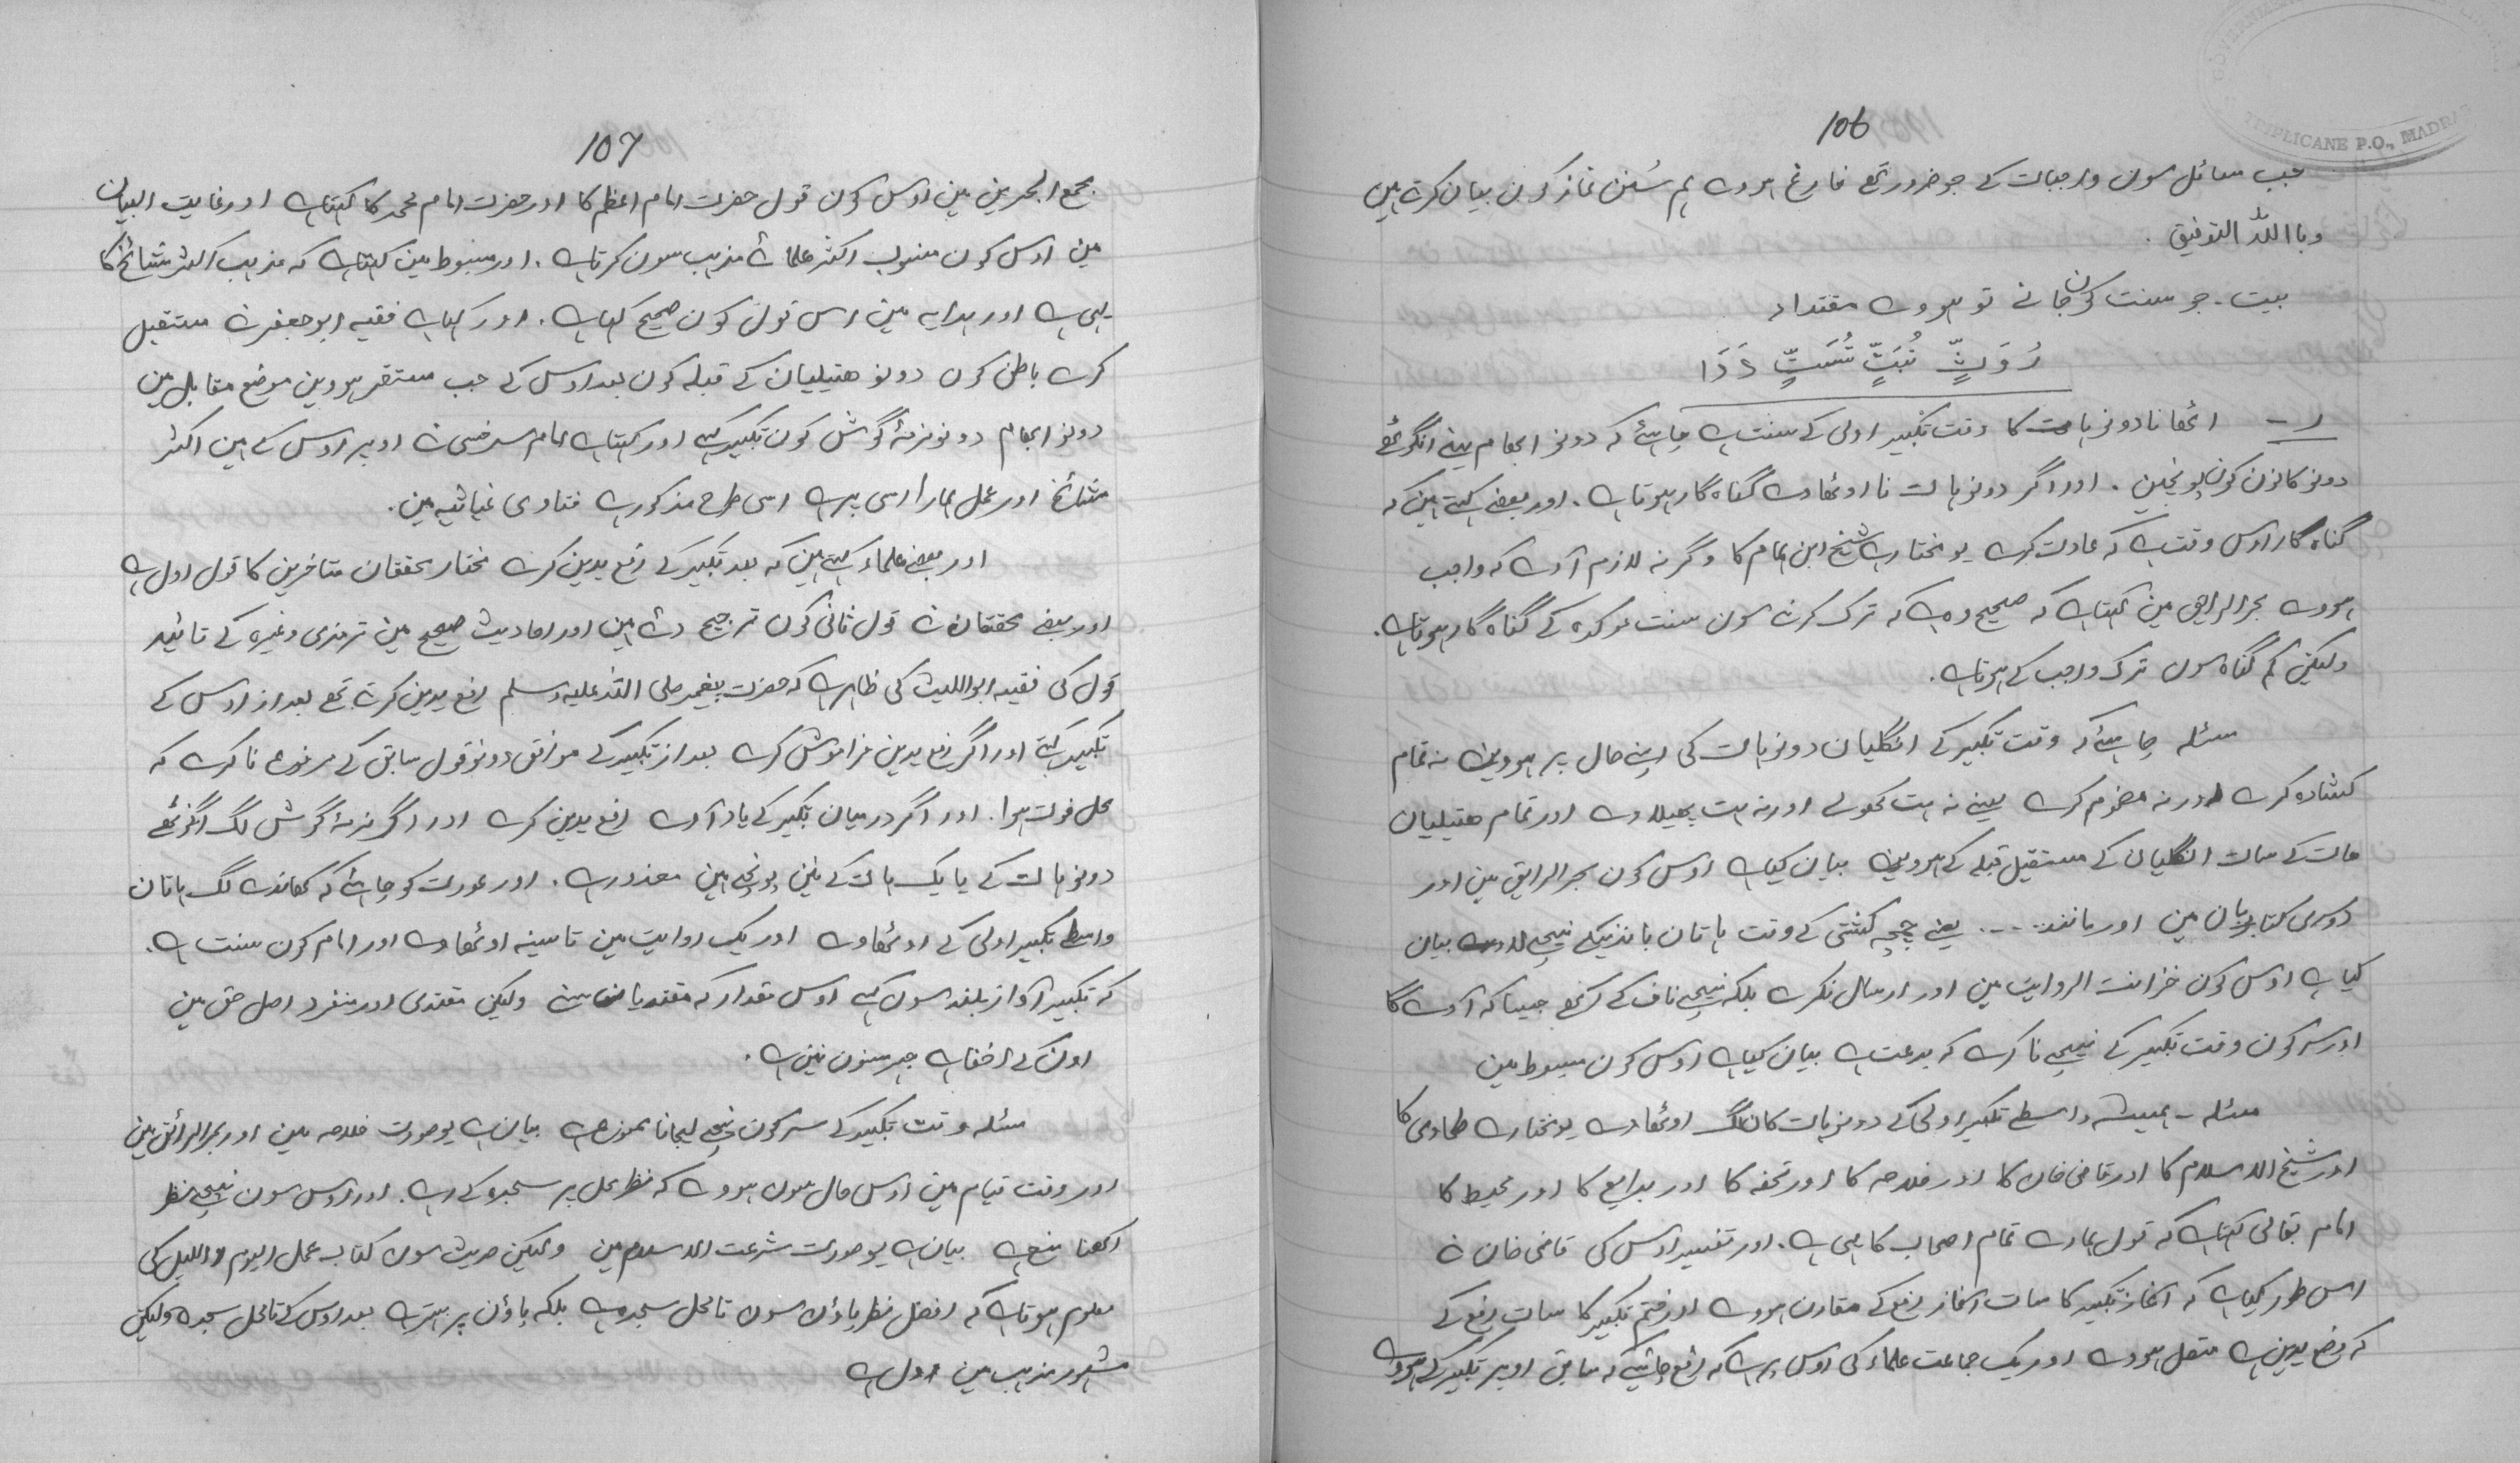 106
جب مسائل سون واجبات کے جو ضرور تھے فارغ ہووے ہم سُنن نماز کون بیان کرتے ہین
وبا اللہ التوفیق .
بیت ۔ جو سنت کون جانے تو ہووے مقتداء
رُوَثٍّ نُبَتٍّ تُسَتٍّ دَدَا
ر ـ اٹھانا دونو ہات کا وقت تکبیر اولی کے سنت ہے چاہئے کہ دونو ابھام یعنے انگوٹھے
دونو کانون کون پونچین . اور اگر دونو ہات نا اوٹھاوے گناہ گار ہوتا ہے . اور بعضے کہتے ہین کہ
گناہ گار اوس وقت ہے کہ عادت کرے یو مختار ہے شیخ ابن ہمام کا وگرنہ لازم آوے کہ واجب
ہووے بحر الرایق مین کہتا ہے کہ صحیح وہ ہے کہ ترک کرنے سون سنت موکدہ کے گناہ گار ہوتا ہے .
ولیکن کم گناہ سون ترک واجب کے ہوتا ہے .
مسئلہ چاہئے کہ وقت تکبیر کے انگلیان دونو ہات کی اپنے حال پر ہووین نہ تمام
کشادہ کرے اور نہ مضموم کرے یعنے نہ بہت کھولے اور نہ بہت پھیلاوے اور تمام ھتیلیان
ہات کے سات انگلیان کے مستقبل قبلہ کے ہووین بیان کیا ہے اوس کون بحر الرایق مین اور
دوسری کتابویان مین اور مانند .... یعنے چچہ کشتی کے وقت ہاتان باندیکے نیچے لاوے بیان
کیا ہے اوس کون خزانت الروایت مین اور ارسال نکرے بلکہ نیچے ناف کے رکھے جیسا کہ آوے گا
اور سر کون وقت تکبیر کے نیچے نا کرے کہ بدعت ہے بیان کیا ہے اوس کون مبسوط مین
مسئلہ ـ ہمیشہ واسطے تکبیر اولی کے دونو ہات کان لگ اوٹھاوے یو مختار ہے طحاوی کا
اور شیخ الاسلام کا اور قاضی خان کا اور خلاصہ کا اور تحفہ کا اور بدایع کا اور محیط کا
امام بقالی کہتا ہے کہ قول ہمارے تمام اصحاب کا یہی ہے . اور تفسیر اوس کی قاضی خان نے
اس طور کیا ہے کہ آغاز تکبیر کا سات آغاز رفع کے مقارن ہووے اور ختم تکبیر کا سات رفع کے
کہ رفع یدین ہے متصل ہووے اور یک جماعت علماء کی اوس پر ہے کہ رفع چاہئے کہ سابق اوپر تکبیر کے ہووے
107
مجمع البحرین مین اوس کون قول حضرت امام اعظم کا اور حضرت امام محمد کا کہتا ہے اور غایت البیان
مین اوس کون منسوب اکثر علمائے مذہب سون کرتا ہے . اور مبسوط مین کہتا ہے کہ مذہب اکثر مشائخ کا
یہی ہے اور ہدایہ مین اس قول کون صحیح کہا ہے . اور کہا ہے فقیہ ابو جعفر نے مستقبل
کرے باطن کون دونو ھتیلیان کے قبلہ کون بعد اوس کے جب مستقر ہووین موضع مقابل مین
دونو ابھام دونو نرمۂ گوش کون تکبیر کہے اور کہتا ہے امام سرخسی نے اوپر اوس کے ہین اکثر
مشائخ اور عمل ہمارا اسی پر ہے اسی طرح مذکور ہے فتاوی غیاثیہ مین .
اور بعضے علماء کہتے ہین کہ بعد تکبیر کے رفع یدین کرے مختار محققان متاخرین کا قول اول ہے
اور بعضے محققان نے قول ثانی کون ترجیح دئے ہین اور احادیث صحیح مین ترمذی وغیرہ کے تائید
قول کی فقیہ ابو اللیث کی ظاہر ہے کہ حضرت پیغمبر صلی اللہ علیہ وسلم رفع یدین کرتے تھے بعد از اوس کے
تکبیر کہتے اور اگر رفع یدین فراموش کرے بعد از تکبیر کے موافق دونو قول سابق کے مرفوع نا کرے کہ
محل فوت ہوا . اور اگر درمیان تکبیر کے یاد آوے رفع یدین کرے اور اگر نرمۂ گوش لگ انگوٹھے
دونو ہات کے یا یک ہات کے نئین پونچے ہین معذور ہے . اور عورت کو چاہئے کہ کھاندے لگ ہاتان
واسطے تکبیر اولی کے اوٹھاوے اور یک روایت مین تا سینہ اوٹھاوے اور امام کون سنت ہے .
کہ تکبیر آواز بلند سون کہے اوس مقدار کہ مقتدیان سنے ولیکن مقتدی اور منفرد اصل حق مین
اون کے اخفا ہے جہر مسنون نئین ہے .
مسئلہ وقت تکبیر کے سر کون نیچے لیجانا ممنوع ہے بیان ہے یو صورت خلاصہ مین اور بحر الرائق مین
اور وقت قیام مین اوس حال سون ہووے کہ نظر محل پر سجدہ کے رہے . اور اوس سون نیچے نظر
رکھنا منع ہے بیان ہے یو صورت شرعت الاسلام مین ولیکن حدیث سون کتاب عمل الیوم واللیل کی
معلوم ہوتا ہے کہ افضل نظر پاؤن سون تا محل سجدہ ہے بلکہ پاؤن پر بہتر ہے بعد اوس کے تا محل سجدہ ولیکن
مشہور مذہب مین اول ہے
TRIPLICANE P.O., MADRA